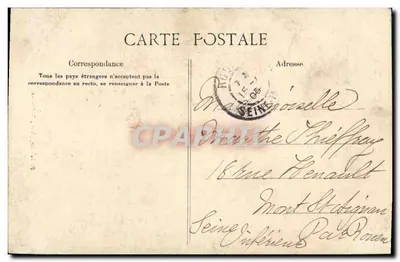 CARTE POSTALE
Correspondance
Adresse
Tous les pays étrangers n'acceptent pas la
correspondance au recto, se renseigner à la Poste
15
05
SEINE
CPRPHOTO
Mademoiselle
Marthe
18 rue Henault
Mont St Aignan
Seine Par Rouen
Inférieure